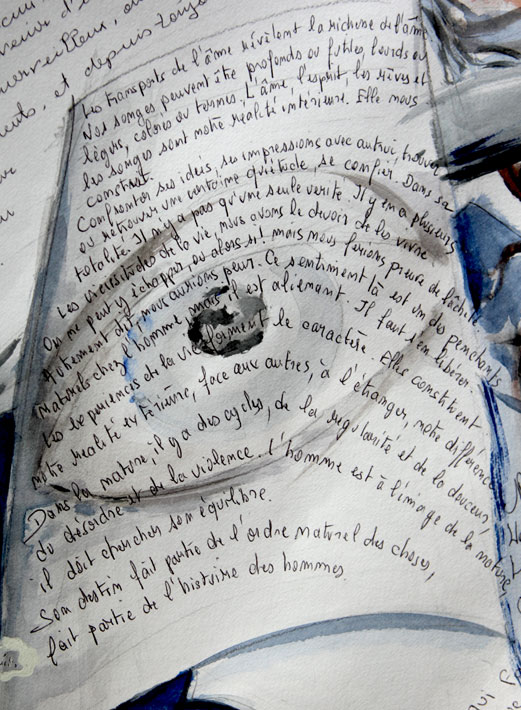 merveilleux,
et depuis toujours
Les transports de l'âme révèlent la richesse de l'âme
Nos songes peuvent être profonds ou futiles, lourds ou
légers, colorés ou ternes. L'âme, l'esprit, les rêves et
les songes sont notre réalité intérieure. Elle nous
construit.
Confronter ses idées, ses impressions avec autrui, trouver
ou retrouver une certaine quiétude, se confier. Dans sa
totalité. Il n'y a pas qu'une seule vérité. Il y en a plusieurs
Les vicissitudes de la vie, nous avons le devoir de les vivre.
On ne peut y échapper, ou alors si! mais nous ferions preuve de lâcheté.
Autrement dit, nous aurions peur. Ce sentiment là est un des penchants
naturels chez l'homme, mais il est aliénant. Il faut s'en libérer.
Les expériences de la vie forment le caractère. Elles constituent
notre réalité extérieure, face aux autres, à l'étranger, notre différence
Dans la nature, il y a des cycles, de la régularité et de la douceur,
du désordre et de la violence. L'homme est à l'image de la nature
il doit chercher son équilibre.
Son destin fait partie de l'ordre naturel des choses,
fait partie de l'histoire des hommes.